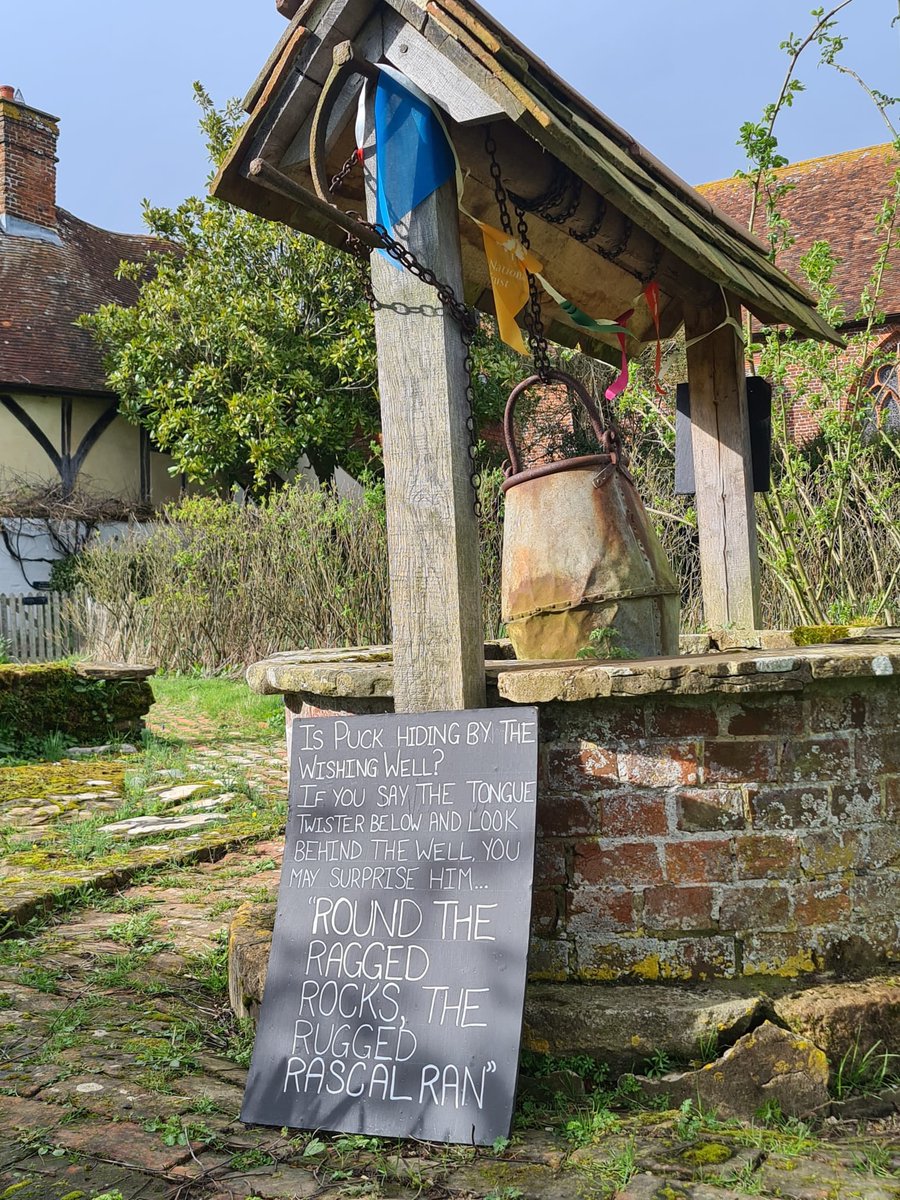 National
Trust
IS PUCK HIDING BY THE
WISHING WELL?
IF YOU SAY THE TONGUE
TWISTER BELOW AND LOOK
BEHIND THE WELL, YOU
MAY SURPRISE HIM...
"ROUND THE
RAGGED
ROCKS, THE
RUGGED
RASCAL RAN"